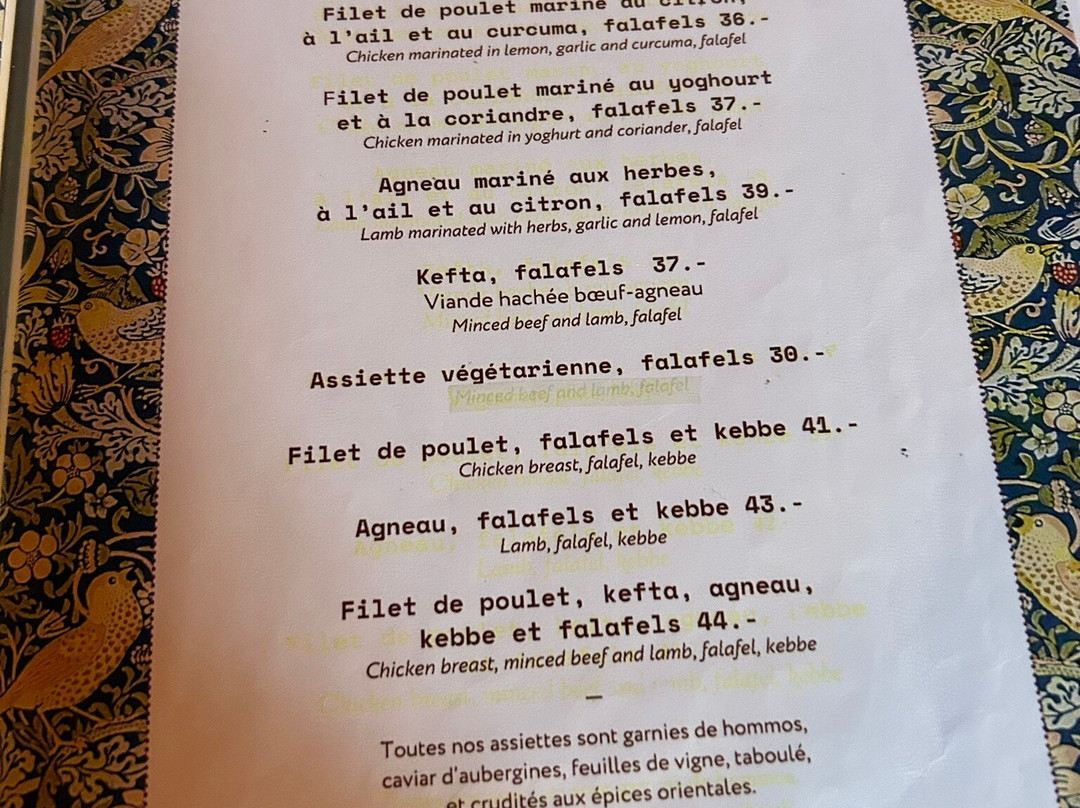 Filet de poulet mariné au citron,
à l'ail et au curcuma, falafels 36.-
Chicken marinated in lemon, garlic and curcuma, falafel
Filet de poulet mariné au yoghourt
et à la coriandre, falafels 37.-
Chicken marinated in yoghurt and coriander, falafel
Agneau mariné aux herbes,
à l'ail et au citron, falafels 39.-
Lamb marinated with herbs, garlic and lemon, falafel
Kefta, falafels 37.-
Viande hachée bœuf-agneau
Minced beef and lamb, falafel
Assiette végétarienne, falafels 30.-
Minced beef and lamb, falafel
Filet de poulet, falafels et kebbe 41.-
Chicken breast, falafel, kebbe
Agneau, falafels et kebbe 43.-
Lamb, falafel, kebbe
Filet de poulet, kefta, agneau,
kebbe et falafels 44.-
Chicken breast, minced beef and lamb, falafel, kebbe
—
Toutes nos assiettes sont garnies de hommos,
caviar d'aubergines, feuilles de vigne, taboulé,
et crudités aux épices orientales.